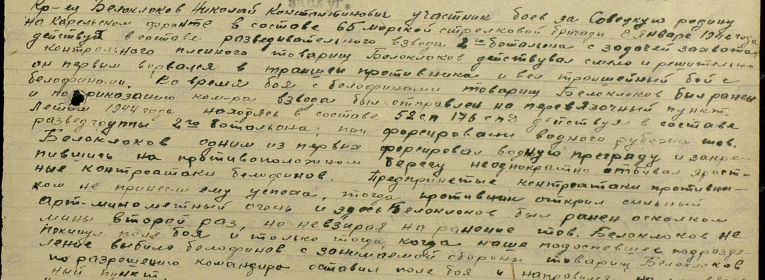 Кр-ец Белоклоков Николай Константинович участник боев за Советскую родину
на Карельском фронте в составе 65 морской стрелковой бригады 8 января 194 года
действуя в составе разведывательного взвода 2го батальона с задачей захвата
контрольного пленного товарищ Белоклоков действовал смело и решительно
он первым ворвался в траншеи противника и вел траншейный бой с
белофинами. Во время боя с белофинами товарищ Белоклоков был ранен
и по приказанию ком-ра взвода был отправлен на перевязочный пункт.
Летом 1944 года находясь в составе 58 сп 176 сд действуя в составе
разведгруппы 2го батальона; при форсировании водного рубежа тов.
Белоклоков одним из первых форсировал водную преграду и закре-
пившись на противоположном берегу неоднократно отбивал ярост-
ные контратаки белофинов. Предпринетые контратаки противни-
ком не принесли ему успеха, тогда противник открил сильный
арт-минометный огонь и здесь Белоклоков был ранен осколком
мины второй раз, но невзирая на ранение тов. Белоклоков не
покинул поле боя и только тогда, когда наше подоспевшее подразде-
ление выбило белофинов с занимаемой обороны товарищ Белоклоков
по разрешению командира оставил поле боя и направился на
ный пункт.